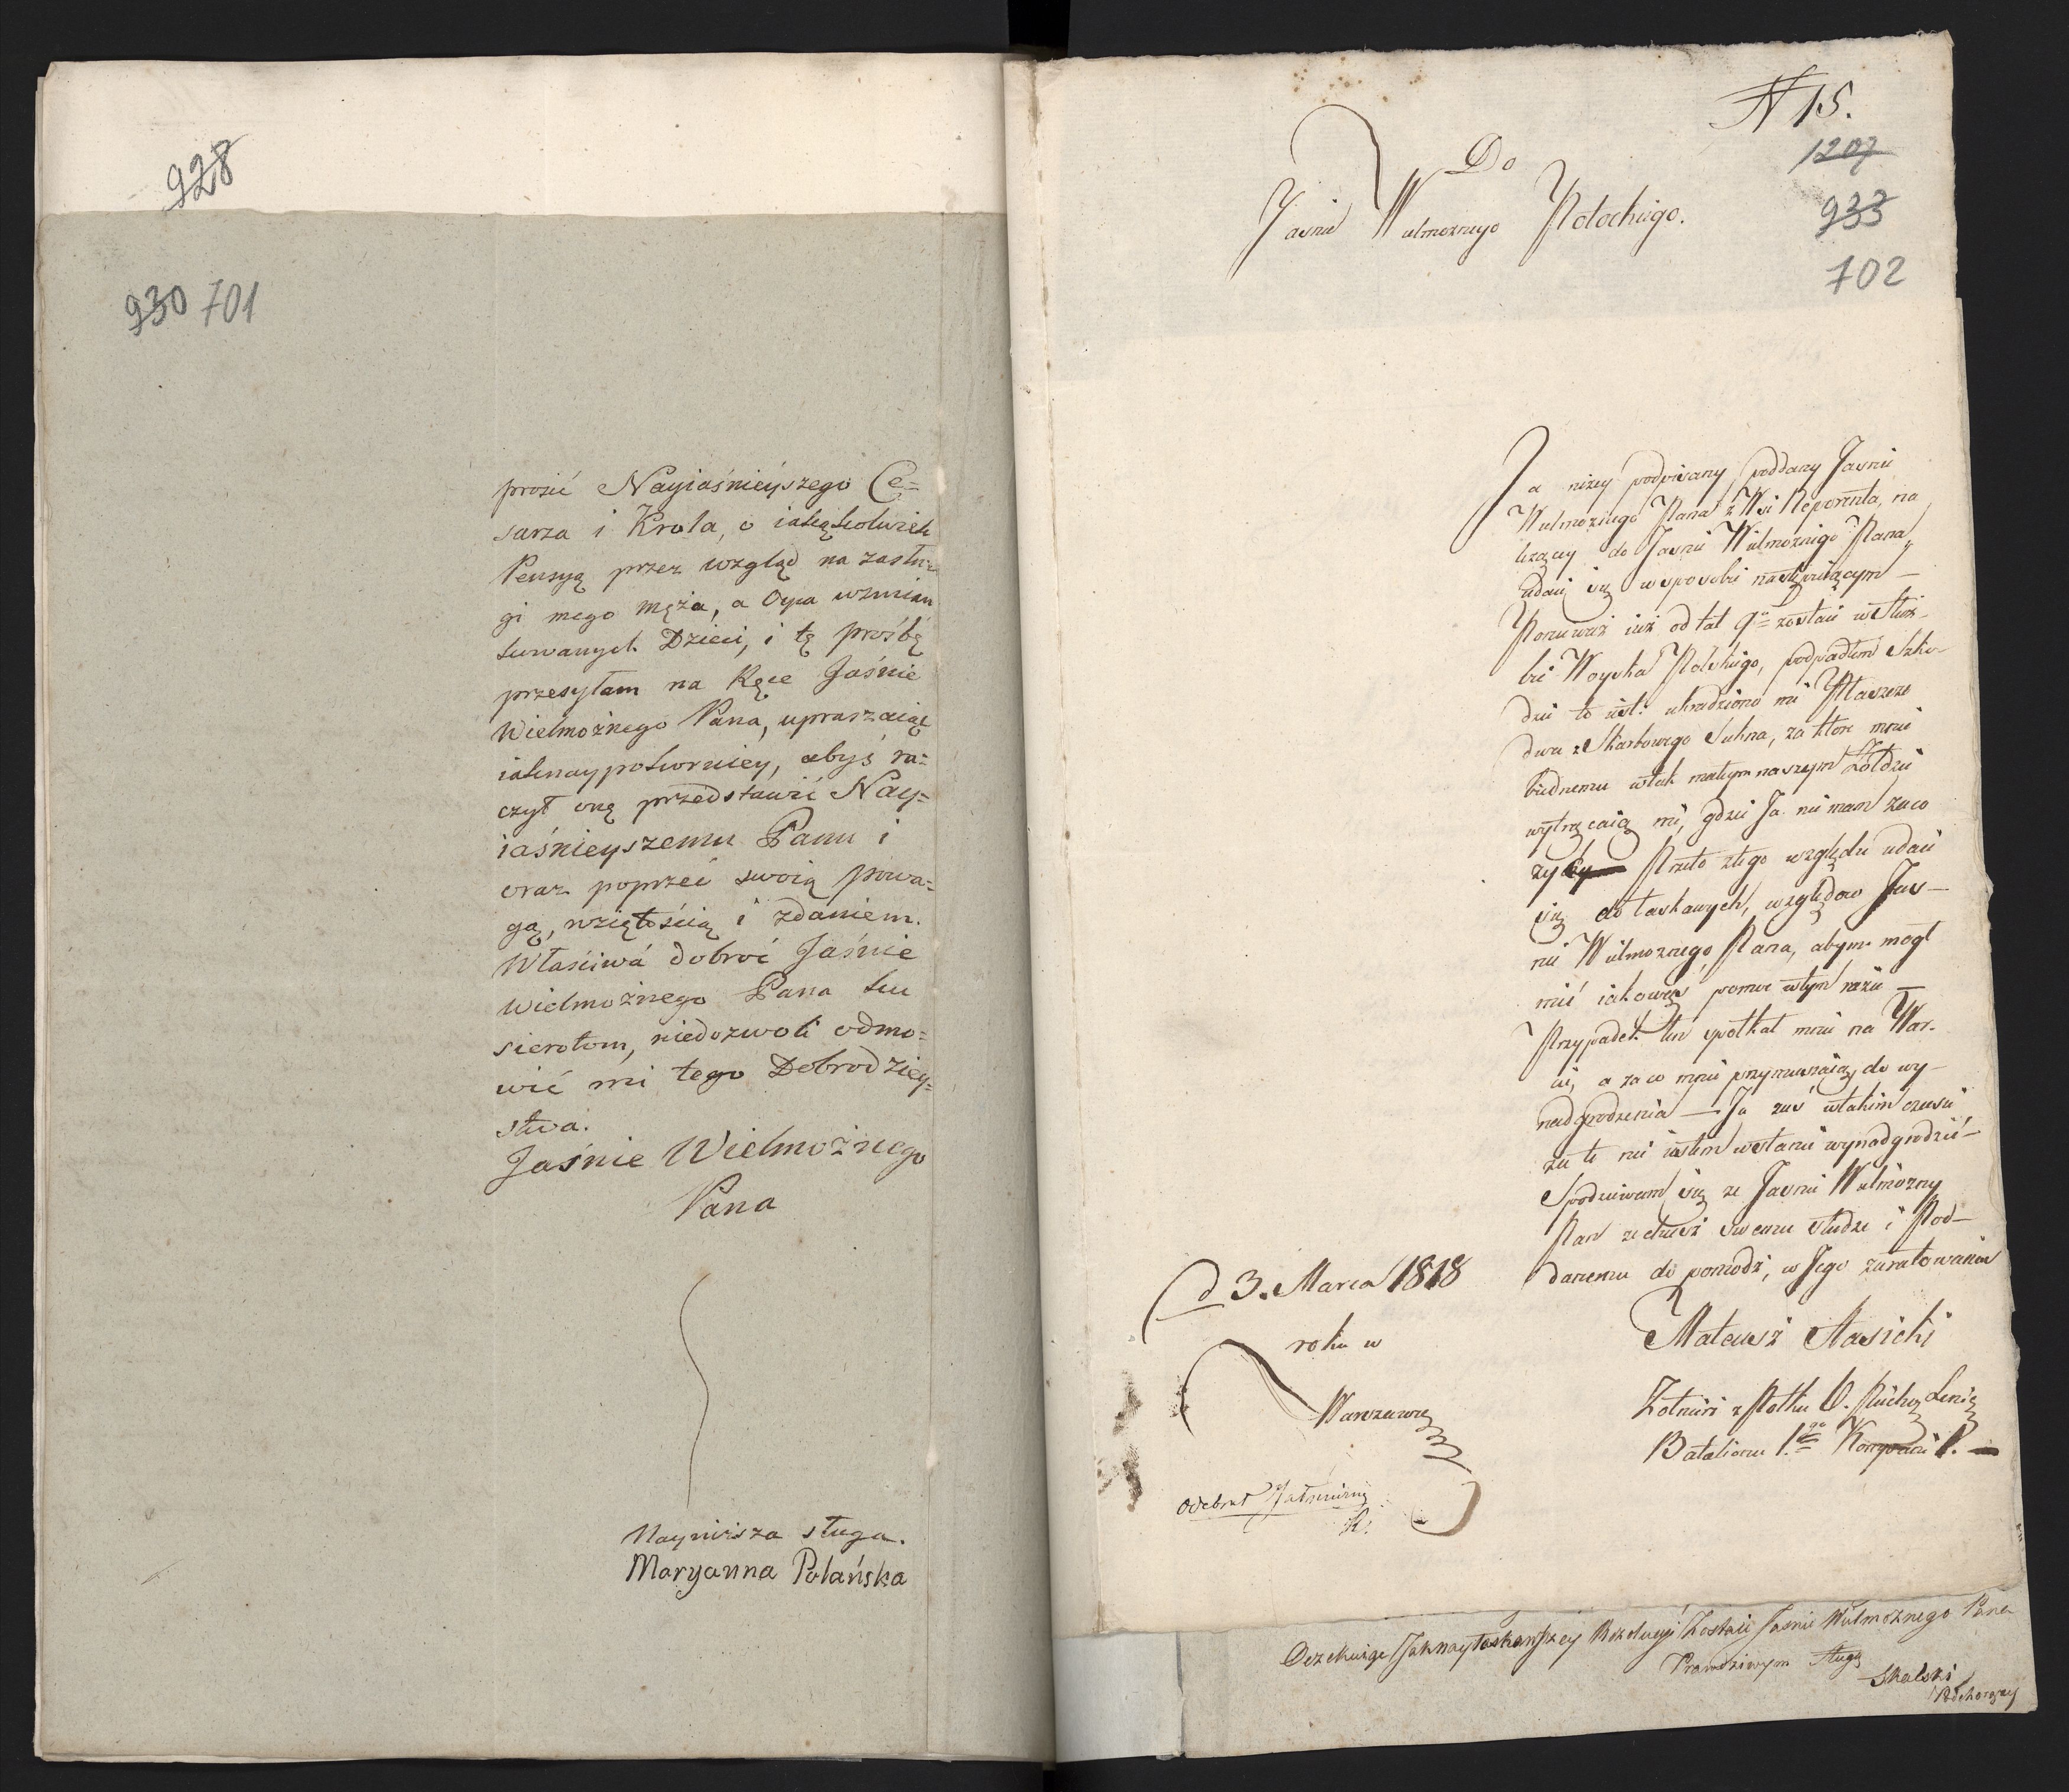 928
930 701
prosić Nayiaśnieyszego Ce=
sarza i Krola, o iakąkolwiek
Pensyą przez wzgląd na zasłu=
gi mego męża, a Oyca wzmian
kowanych Dzieci, i tę prośbę
przesyłam na Ręce Jaśnie
Wielmożnego Pana, upraszaiąc
iaknaypokorniey, abyś ra=
czył onę przedstawić Nay=
iaśnieyszemu Panu i
oraz poprzeć swoią powa=
gą, wziętością i zdaniem.
Właściwa dobroć Jaśnie
Wielmożnego Pana ku
sierotom, niedozwoli odmo=
wić mi tego Dobrodziey=
stwa.
Jaśnie Wielmożnego
Pana
Nayniższa sługa.
Maryanna Polańska
N 15.
1207
933
702
Do
Jasnie Wielmoznego Potockiego.
Ja niżey podpisany poddany Jasnie
Wielmoznego Pana z Wsi Reporenta, na
lezący do Jasnie Wielmożnego Pana,
udaie się w sposobie następuiącym —
Ponieważ iuż od lat 9u zostaie w Służ-
bie Woyska Polskiego, podpadłem Szko-
dzie to iest: ukradziono mi Płaszcze
dwa z Skarbowego Sukna, za ktore mnie
biednemu w tak małym naszym Żołdzie
wytrącaią mi, gdzie Ja nie mam zaco
zyć Przeto z tego względu udaie
się do łaskawych, względow Jas—
nie Wielmoznego Pana, abym mogł
mieć iakowąś pomoc w tym razie —
Przypadek ten spotkał mnie na War-
cie, a za co mnie przymuszaią do wy—
nadgrodzenia — Ja zaś w takim czasie
za to nie iestem w stanie wynadgrodzić—
Spodziewam się ze Jasnie Wielmozny
Pan zechcesz swemu słudze i Pod—
danemu do pomodz, w Jego zaratowaniu
d 3. Marca 1818
roku w
Warszawie
Mateusz Stasicki
Żołnierz z Połku 6. Piechoty Linią
Batalionu 1.go Kompanii 1. —
odebrał Jałmużnę
K.
Oczekuiąc Jaknayłaskawszey Rezolucyi Zostaię Jasnie Wielmożnego Pana
Prawdziwym Sługą
Skalski
Podchorąży